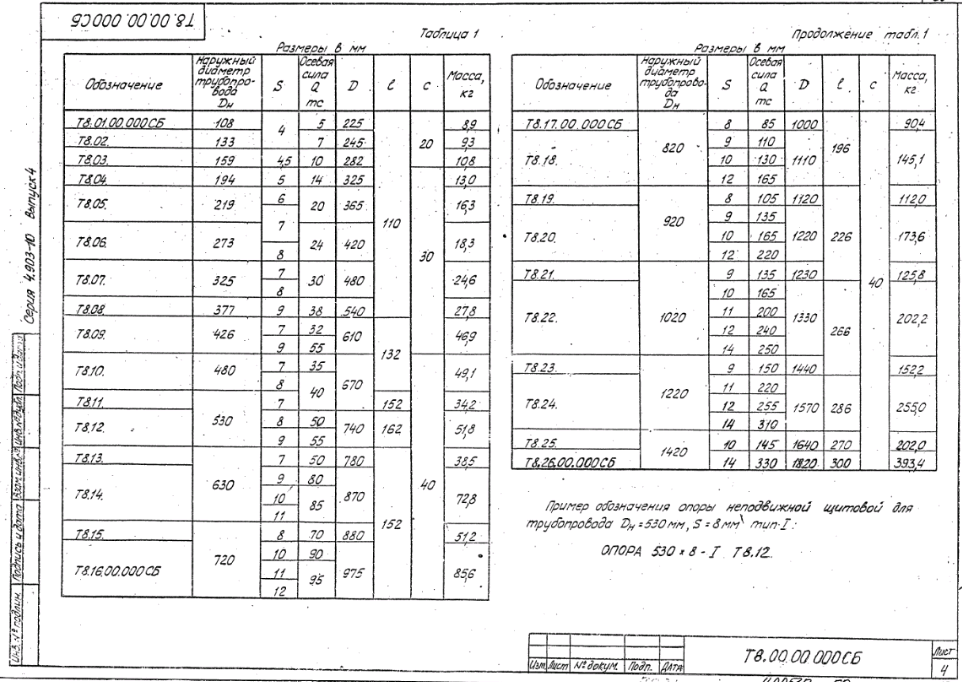 Т8.00.00.000СБ
Таблица 1
Размеры в мм
Обозначение | Наружный диаметр трубопровода Dн | S | Осевая сила Q тс | D | ℓ | с | Масса, кг
Т8.01.00.000СБ | 108 | 4 | 5 | 225 | 110 | 20 | 8,9
Т8.02. | 133 | 7 | 245 | 9,3
Т8.03. | 159 | 4,5 | 10 | 282 | 10,8
Т8.04. | 194 | 5 | 14 | 325 | 30 | 13,0
Т8.05. | 219 | 6 | 20 | 365 | 16,3
7
Т8.06. | 273 | 24 | 420 | 18,3
8
Т8.07. | 325 | 7 | 30 | 480 | 24,6
8
Т8.08. | 377 | 9 | 38 | 540 | 27,8
Т8.09. | 426 | 7 | 32 | 610 | 132 | 46,9
9 | 55
Т8.10. | 480 | 7 | 35 | 670 | 40 | 49,1
8 | 40
Т8.11. | 530 | 7 | 152 | 34,2
Т8.12. | 8 | 50 | 740 | 162 | 51,8
9 | 55
Т8.13. | 630 | 7 | 50 | 780 | 152 | 38,5
Т8.14. | 9 | 80 | 870 | 72,8
10 | 85
11
Т8.15. | 720 | 8 | 70 | 880 | 51,2
Т8.16.00.000СБ | 10 | 90 | 975 | 85,6
11 | 95
12
Продолжение табл. 1
Размеры в мм
Обозначение | Наружный диаметр трубопровода Dн | S | Осевая сила Q тс | D | ℓ | с | Масса, кг
Т8.17.00.000СБ | 820 | 8 | 85 | 1000 | 196 | 40 | 90,4
Т8.18. | 9 | 110 | 1110 | 145,1
10 | 130
12 | 165
Т8.19. | 920 | 8 | 105 | 1120 | 226 | 112,0
Т8.20. | 9 | 135 | 1220 | 173,6
10 | 165
12 | 220
Т8.21. | 1020 | 9 | 135 | 1230 | 266 | 125,8
Т8.22. | 10 | 165 | 1330 | 202,2
11 | 200
12 | 240
14 | 250
Т8.23. | 1220 | 9 | 150 | 1440 | 286 | 152,2
Т8.24. | 11 | 220 | 1570 | 255,0
12 | 255
14 | 310
Т8.25. | 1420 | 10 | 145 | 1640 | 270 | 202,0
Т8.26.00.000СБ | 14 | 330 | 1820 | 300 | 393,4
Пример обозначения опоры неподвижной щитовой для
трубопровода Dн = 530 мм, S = 8 мм тип I:
ОПОРА 530 х 8 - I Т8.12.
Серия 4.903-10 Выпуск 4
Инв. № подлин. Подпись и дата Взам. инв. № Инв. № дубл. Подп. и дата
Изм. Лист № докум. Подп. Дата
Т8.00.00.000СБ
Лист
4